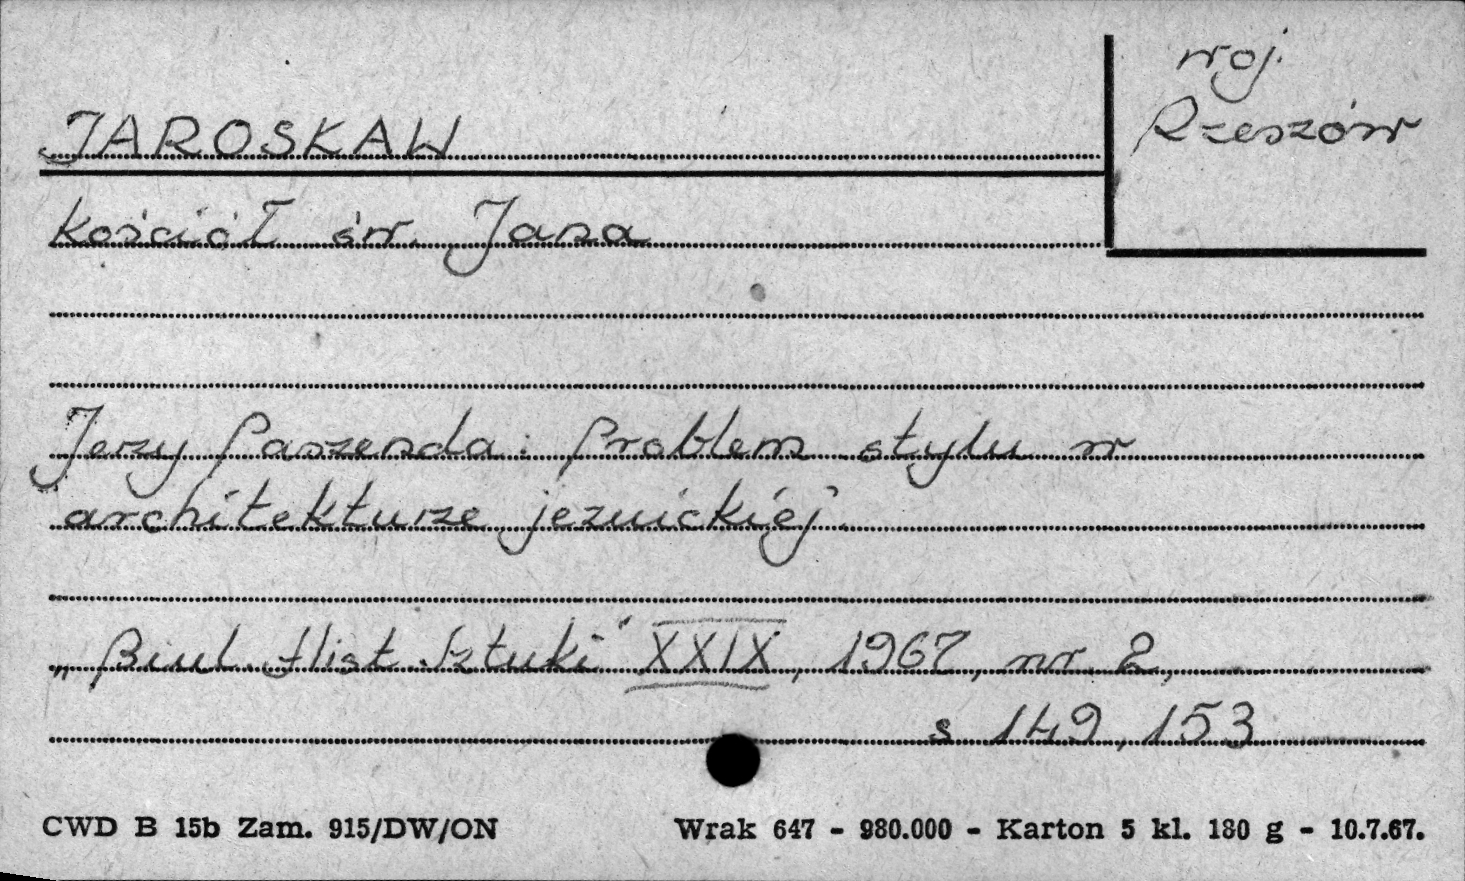 woj.
Rzeszów
JAROSŁAW
kościół św. Jana
Jerzy Paszenda: Problem stylu w
architekturze jezuickiej.
„Biul. Hist. Sztuki" XXIX, 1967, nr 2,
s 149, 153
CWD B 15b Zam. 915/DW/ON Wrak 647 - 980.000 - Karton 5 kl. 180 g - 10.7.67.